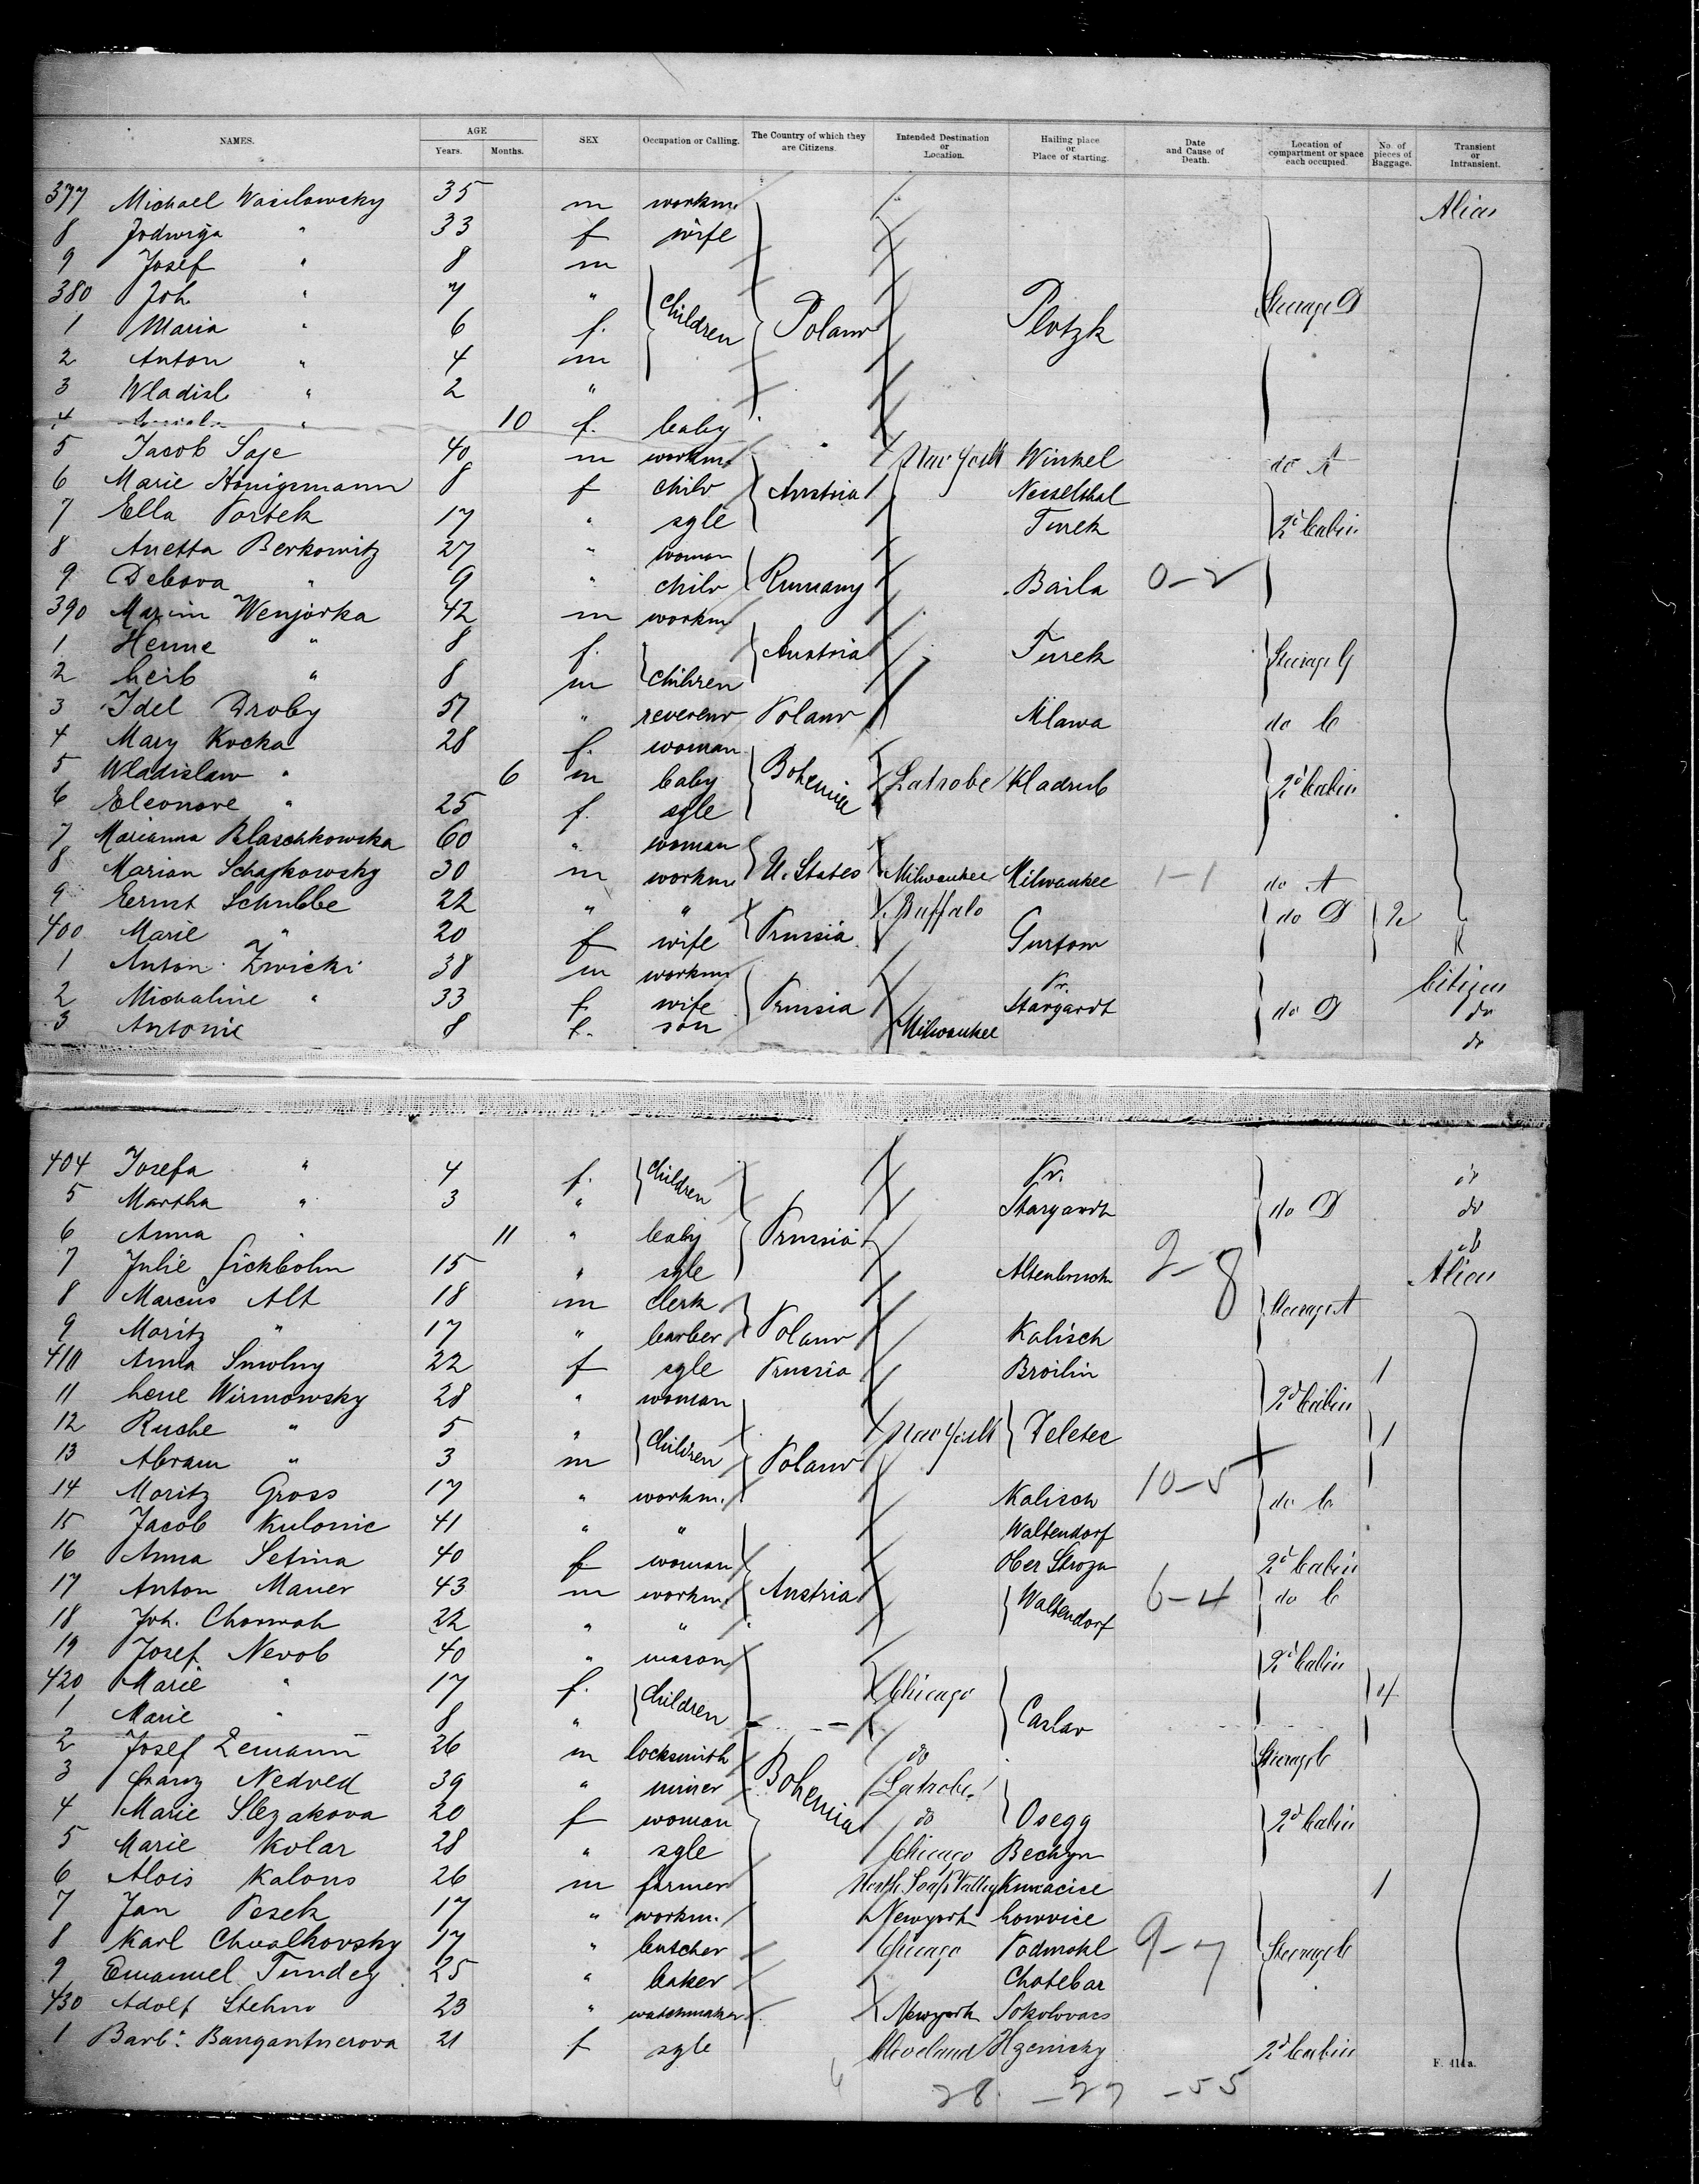 NAMES. AGE Years. Months. SEX Occupation or Calling. The Country of which they are Citizens. Intended Destination or Location. Hailing place or Place of starting. Date and Cause of Death. Location of compartment or space each occupied. No. of pieces of Baggage. Transient or Intransient.
377 Michael Wasilowsky 35 m workm. Alien
8 Jadwiga " 33 f wife
9 Josef " 8 m
380 Joh. " 7 " children Poland Plotzk Steerage D
1 Maria " 6 f.
2 Anton " 4 m
3 Wladisl " 2 "
4 " 10 f. baby
5 Jacob Saje 40 m workm. " New York Winkel do A
6 Marie Honigsmann 8 f child Austria Nesselthal
7 Ella Portek 17 " sgle Turek 2d Cabin
8 Anetta Berkowitz 27 " woman
9 Debora " 9 " child Rumany Baila 0-2
390 Marcin Wenjorka 42 m workm
1 Henne " 8 f. Austria Turek Steerage G
2 Leib " 8 m children
3 Idel Droby 57 " reverend Poland Mlawa do C
4 Mary Kocka 28 f. woman
5 Wladislaw " 6 m baby Bohemia Latrobe Kladrub 2d Cabin
6 Eleonore " 25 f. sgle
7 Marianna Blaschkowska 60 " woman
8 Marian Schajkowsky 30 m workm. U. States Milwaukee Milwaukee 1-1 do A
9 Ernst Schubbe 22 " " Buffalo do D 2
400 Marie " 20 f wife Prussia Gurtow
1 Anton Zwicki 38 m workm. Citizen
2 Michaline " 33 f. wife Prussia Pr. Stargardt do D do
3 Antonie 8 f. son Milwaukee do
404 Josefa " 4 f. children Pr. do
5 Martha " 3 " Stargardt do D do
6 Anna " 11 " baby Prussia do
7 Julie Fickbohm 15 " sgle Altenbruch 2-8 Alien
8 Marcus Alt 18 m clerk Steerage A
9 Moritz " 17 " barber Poland Kalisch
410 Anna Smolny 22 f sgle Prussia Broilin 1
11 Lene Wirmowsky 28 " woman 2d Cabin
12 Ruche " 5 " children New York Teletec 1
13 Abram " 3 m Poland
14 Moritz Gross 17 " workm. Kalisch 10-5 do C
15 Jacob Kulonic 41 " " Waltendorf
16 Anna Setina 40 f woman Ober Skrozn 2d Cabin
17 Anton Maner 43 m workm. Austria Waltendorf 6-4 do C
18 Joh. Chorwoh 22 " "
19 Josef Nevob 40 " mason 2d Cabin
420 Marie " 17 f. children Chicago 4
1 Marie " 8 " Caslav
2 Josef Zemann 26 m locksmith do Steerage C
3 Franz Nedved 39 " miner Bohemia Latrobe
4 Marie Slezakova 20 f woman do Osegg 2d Cabin
5 Marie Kolar 28 " sgle Chicago Bechyn
6 Alois Kalous 26 m farmer North Valley Kunacice 1
7 Jan Pesek 17 " workm. Newyork Lowvice
8 Karl Chvalkovsky 17 " butcher Chicago Podmokl 9-7 Steerage C
9 Emanuel Tundey 25 " baker Chotebar
430 Adolf Stehno 23 " watchmaker Newyork Sokolovacs
1 Barb. Baugantnerova 21 f sgle Cleveland 2d Cabin
F. 414a.
28 -27 -55